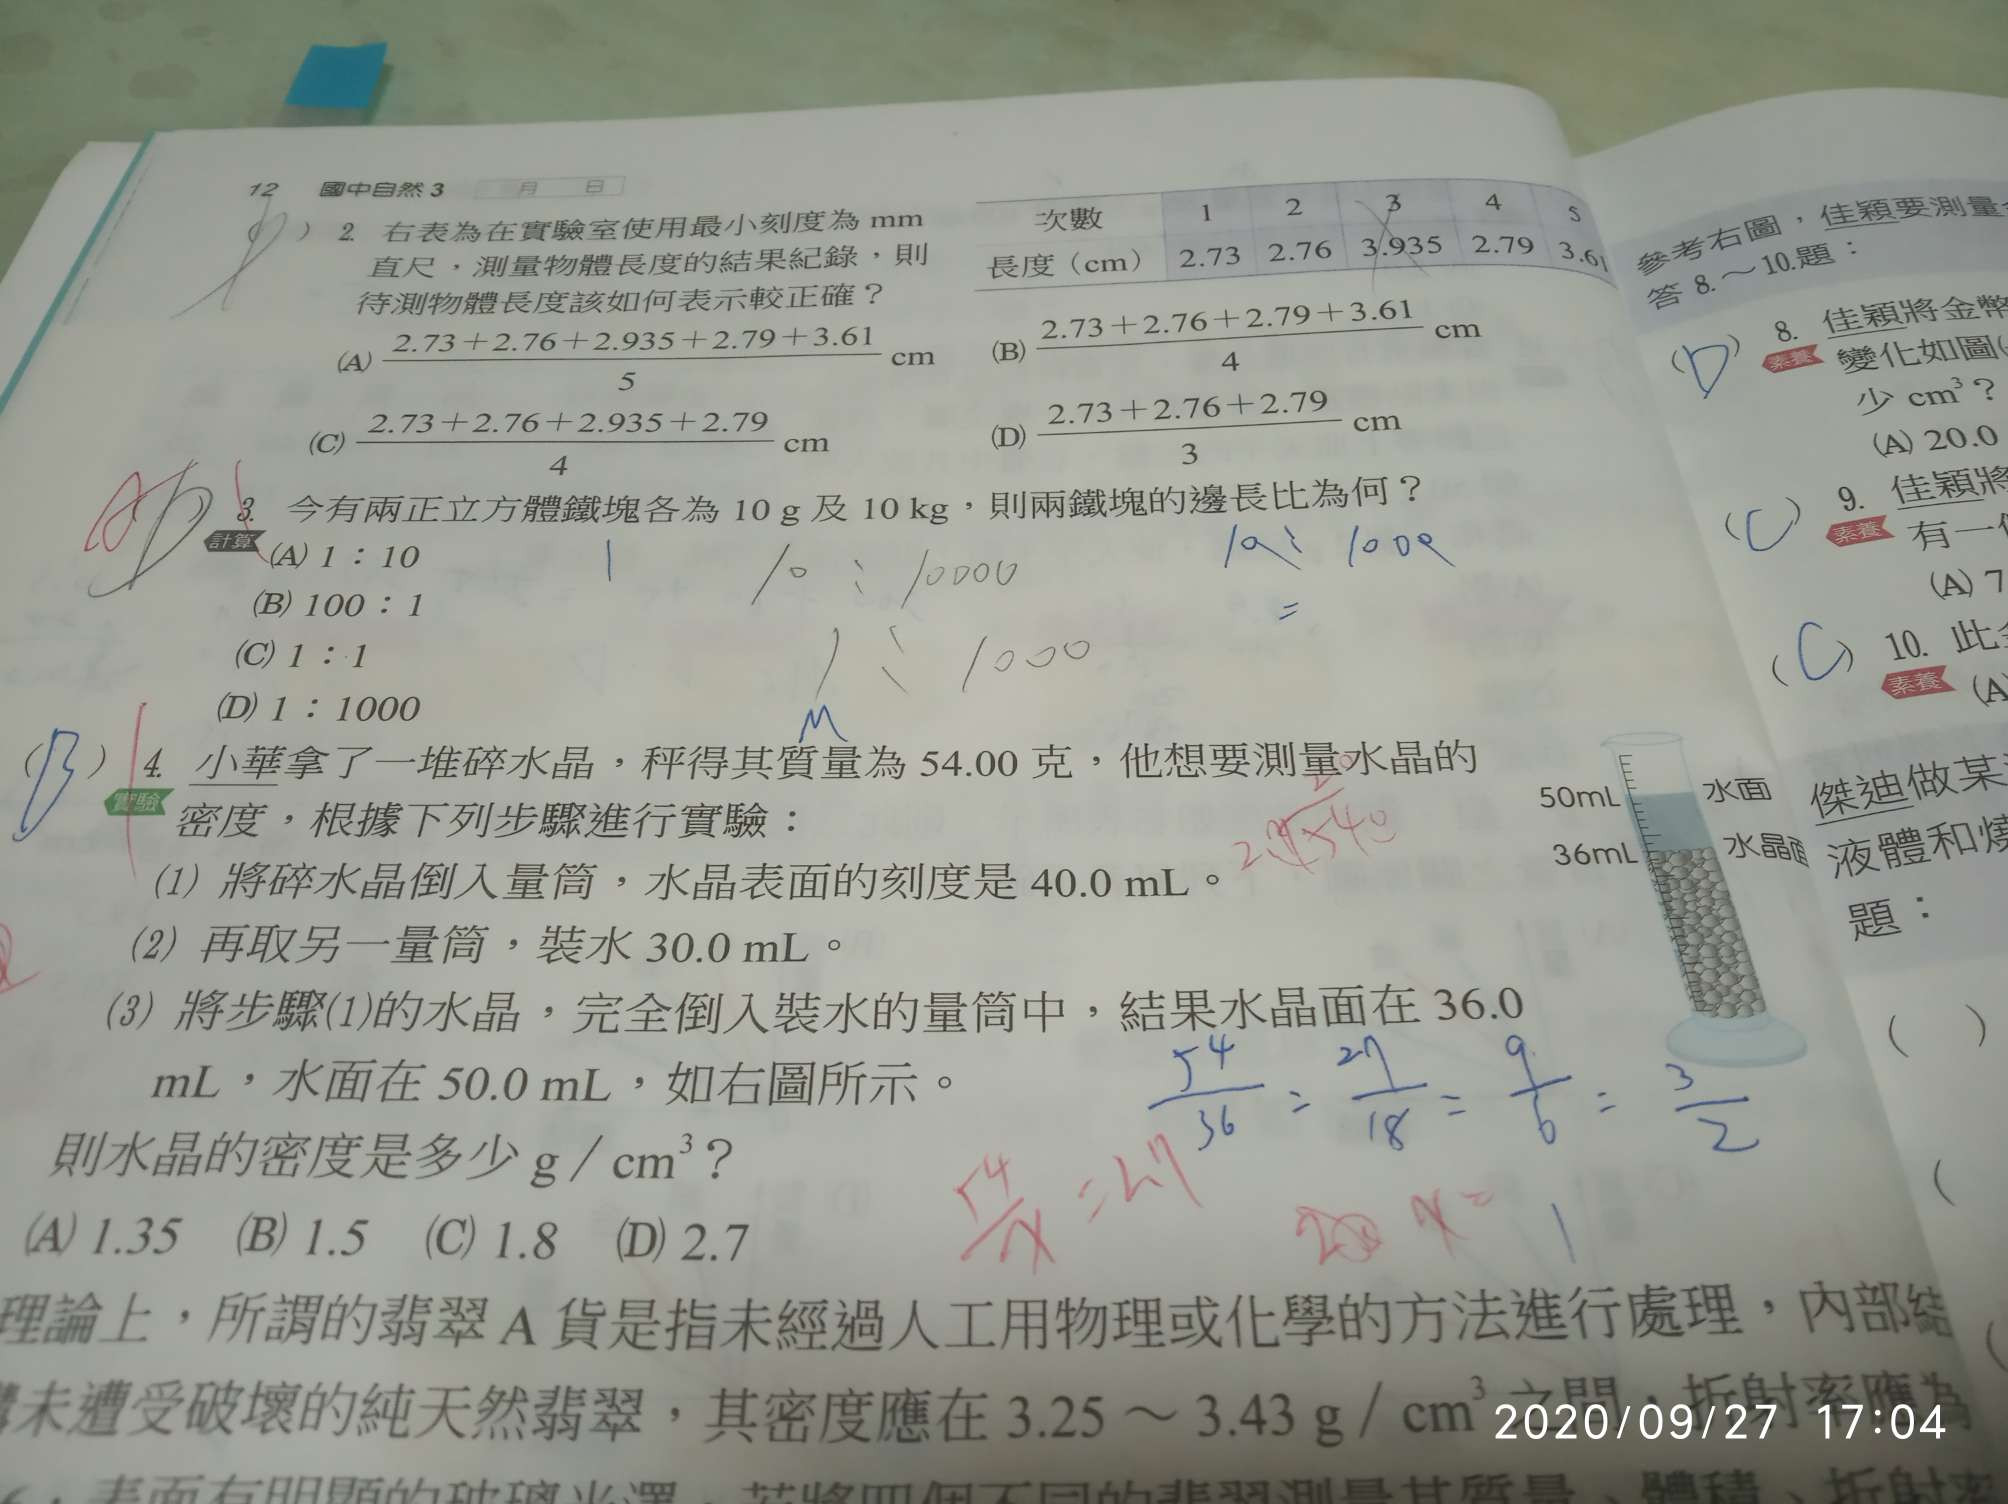 12 國中自然 3 月 日
( D ) 2. 右表為在實驗室使用最小刻度為 mm
直尺，測量物體長度的結果紀錄，則
待測物體長度該如何表示較正確？
次數 1 2 3 4 5
長度（cm） 2.73 2.76 3.935 2.79 3.61
(A) 2.73＋2.76＋2.935＋2.79＋3.61 / 5 cm
(B) 2.73＋2.76＋2.79＋3.61 / 4 cm
(C) 2.73＋2.76＋2.935＋2.79 / 4 cm
(D) 2.73＋2.76＋2.79 / 3 cm
A D 3. 今有兩正立方體鐵塊各為 10 g 及 10 kg，則兩鐵塊的邊長比為何？
計算
(A) 1：10
(B) 100：1
(C) 1：1
(D) 1：1000
10：10000
1：1000
10：1000
=
M
( B ) 4. 小華拿了一堆碎水晶，秤得其質量為 54.00 克，他想要測量水晶的
實驗 密度，根據下列步驟進行實驗：
(1) 將碎水晶倒入量筒，水晶表面的刻度是 40.0 mL。
(2) 再取另一量筒，裝水 30.0 mL。
(3) 將步驟(1)的水晶，完全倒入裝水的量筒中，結果水晶面在 36.0
mL，水面在 50.0 mL，如右圖所示。
則水晶的密度是多少 g／cm³？
(A) 1.35 (B) 1.5 (C) 1.8 (D) 2.7
50mL 水面
36mL 水晶面
54/36 = 27/18 = 9/6 = 3/2
54/x = 2.7
20 x =
理論上，所謂的翡翠 A 貨是指未經過人工用物理或化學的方法進行處理，內部結
構未遭受破壞的純天然翡翠，其密度應在 3.25～3.43 g／cm³ 之間，折射率應為
表面有明顯的玻璃光澤，若將四個不同的翡翠測量其質量、體積、折射率
參考右圖，佳穎要測量
答 8.～10.題：
( D ) 8. 佳穎將金幣
素養 變化如圖
少 cm³？
(A) 20.0
( C ) 9. 佳穎將
素養 有一
(A) 7
( C ) 10. 此
素養 (A)
傑迪做某
液體和燒
題：
2020/09/27 17:04